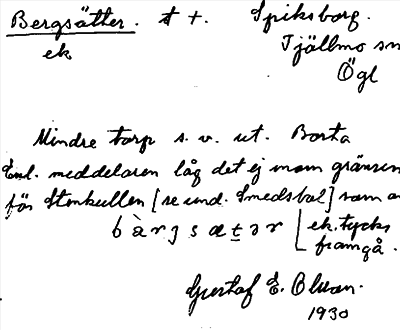 Bergsätter. t +. Spiksborg.
ek Tjällmo sn
Ögl
Mindre torp s. v. ut. Borta
Enl. meddelaren låg det ej inom gränsen
för Stenkullen [se und. Smedsbol] som a
bàrjsætər [ek. tycks
framgå.
Gustaf E. Olsson.
1930